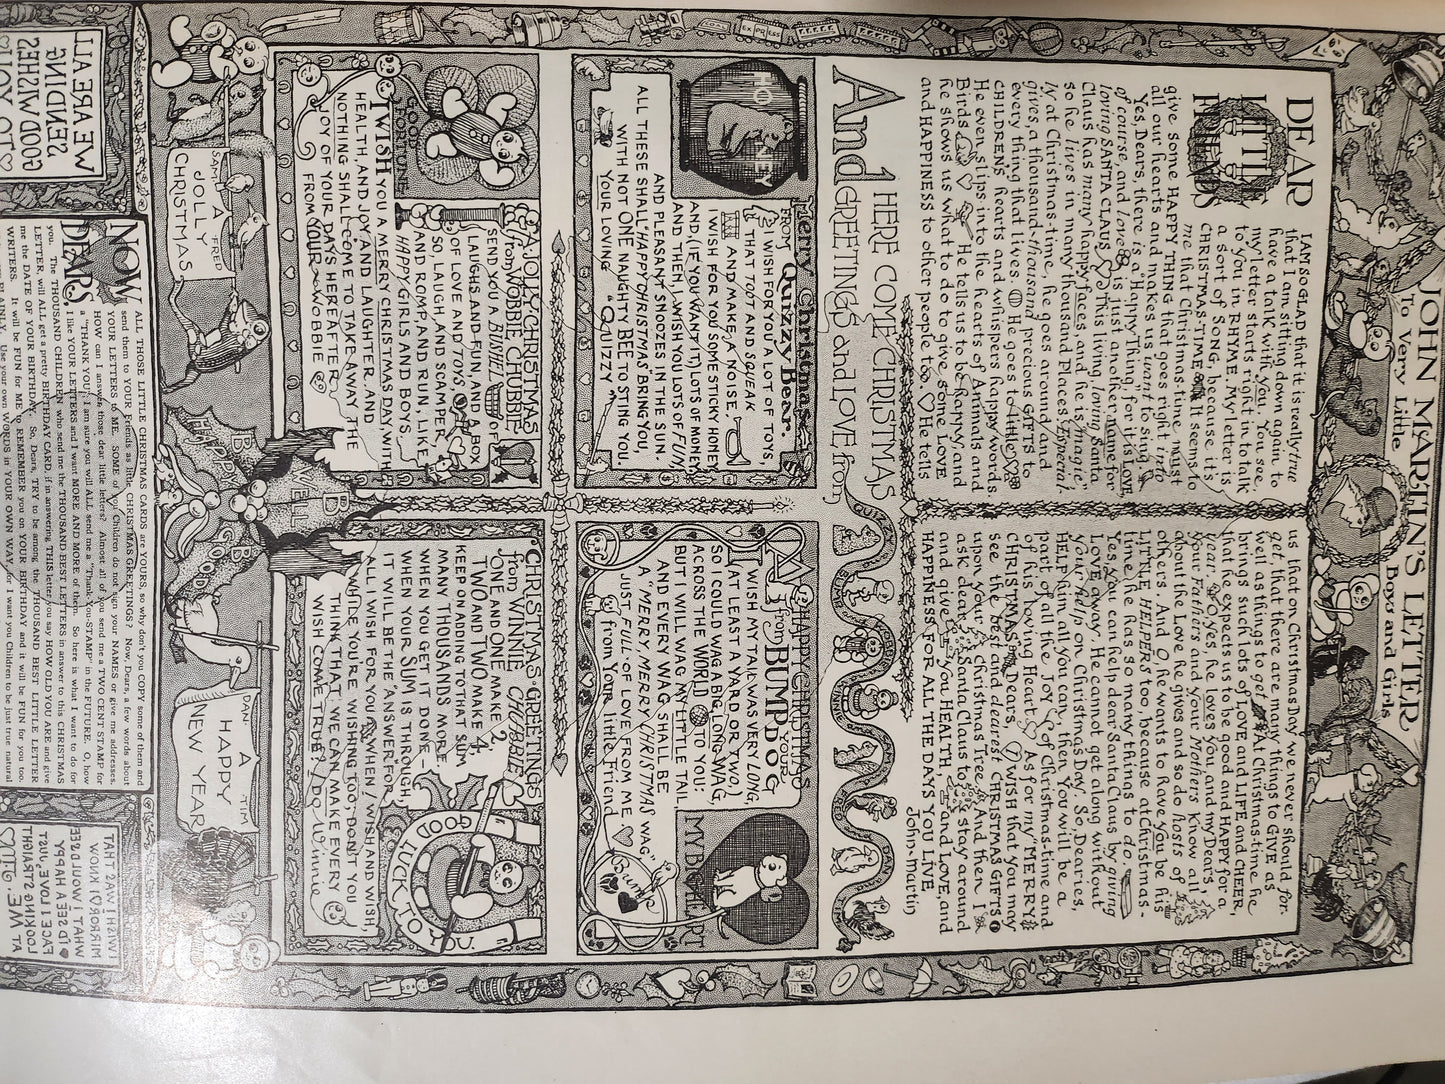 JOHN MARTIN'S LETTER
To Very Little Boys and Girls
DEAR
LITTLE
FRIENDS
I AM SO GLAD that it is really true
that I am sitting down again, to
have a talk with you. You see,
my letter starts right in to talk
to you in RHYME. MY letter is
a sort of SONG, because it's
CHRISTMAS-TIME. It seems to
me that Christmas-tunes must
give some HAPPY THING that goes right into
all our hearts and makes us want to sing.
Yes, Dears, there is a Happy Thing, for it is LOVE,
of course, and love is just another name for,
loving SANTA CLAUS. This living, loving Santa
Claus has many happy faces, and he is "magic,"
so he lives in many thousand Places. Especial-
ly at Christmas-time, he goes around and
gives, a thousand-thousand precious GIFTS to
every thing that lives. He goes to little
CHILDREN'S hearts and whispers happy words.
He even slips into the hearts of Animals and
Birds. He tells us to be happy, and
he shows us what to do to give some LOVE
and HAPPINESS to other people too. He tells
us that on Christmas Day we never should for-
get, that there are many things to GIVE as
well as things to get. At Christmas-time he
brings such lots of LOVE and LIFE and CHEER,
that he expects us to be good and HAPPY for a
year. O yes, he loves You, and my Dears,
your Fathers and your Mothers know all
about the Love he gives and so do hosts of
others. And O, he wants to have you be his
LITTLE HELPERS too, because at Christmas-
time he has so many things to do.
Yes, you can help dear Santa Claus by giving
LOVE away. He cannot get along without
your help on Christmas Day. So, Dearies,
HELP him all you can, then You will be a
part of all the Joy of Christmas-time and
of his loving Heart. As for my "MERRY
CHRISTMAS" Dears, I WISH that you may
see the best and dearest CHRISTMAS GIFTS
upon your Christmas Tree. And then I
ask dear Santa Claus to stay around
and give you HEALTH and LOVE, and
HAPPINESS FOR ALL THE DAYS YOU LIVE
John-martin
HERE COME CHRISTMAS
And GREETINGS and LOVE, from
QUIZZY
Merry Christmas
FROM Quizzy Bear.
I WISH FOR YOU A LOT OF TOYS,
THAT TOOT AND SQUEAK
AND MAKE A NOISE.
I WISH FOR YOU SOME STICKY HONEY
AND, (IF YOU WANT IT) LOTS OF MONEY
AND THEN, I WISH YOU LOTS OF FUN,
AND PLEASANT SNOOZES IN THE SUN
ALL THESE SHALL "HAPPY CHRISTMAS" BRING YOU,
WITH NOT ONE NAUGHTY BEE TO STING YOU.
YOUR LOVING "QUIZZY"
A HAPPY CHRISTMAS
from YOUR BUMPDOG
I WISH MY TAIL WAS VERY LONG,
AT LEAST A YARD OR TWO,
SO I COULD WAG A BIG, LONG WAG,
ACROSS THE WORLD TO YOU:
BUT I WILL WAG MY LITTLE TAIL,
AND EVERY WAG SHALL BE
A "MERRY, MERRY CHRISTMAS WAG"
JUST FULL OF LOVE FROM ME
from Your little Friend
Bump
MY BIG HEART
A JOLLY CHRISTMAS
from WOBBIE CHUBBIE
GOOD
FORTUNE
SEND YOU A BUNDLE
LAUGHS AND FUN, AND A BOX
OF LOVE AND TOYS,
SO, LAUGH AND SCAMPER
AND ROMP, AND RUN, LIKE
HAPPY GIRLS AND BOYS.
I WISH YOU A MERRY CHRISTMAS DAY WITH
HEALTH AND JOY AND LAUGHTER. AND
NOTHING SHALL COME TO TAKE AWAY THE
JOY OF YOUR DAYS HEREAFTER.
FROM YOUR WOBBIE
CHRISTMAS GREETINGS
from WINNIE CHUBBIE
ONE AND ONE MAKE 2
TWO AND TWO MAKE 4,
KEEP ON ADDING TO THAT SUM
MANY THOUSANDS MORE.
WHEN YOU GET IT DONE-
WHEN YOUR SUM IS THROUGH,
IT WILL BE THE "ANSWER" FOR,
ALL I WISH FOR YOU. WHEN I WISH AND WISH,
WHILE YOU'RE WISHING TOO, DON'T YOU
THINK THAT WE CAN MAKE EVERY
WISH COME TRUE? I DO Winnie
GOOD LUCK TO YOU.
A
JOLLY
CHRISTMAS
SAM
FRED
BE WELL
BE HAPPY
BE GOOD
DAN
TIM
A
HAPPY
NEW YEAR
WE ARE ALL
SENDING
GOOD WISHES
NOW
DEARS,
ALL THOSE LITTLE CHRISTMAS CARDS are YOURS, so why don't you COPY some of them and
send them to YOUR Friends as little CHRISTMAS GREETINGS? Now, Dears, a few words about
YOUR LETTERS to ME. SOME of you Children do not sign your NAMES or give me addresses.
How can I answer those dear little letters? Almost all of you send me a TWO CENT STAMP for
a "THANK YOU"; I am sure you will ALL send me a "Thank-You-STAMP" in the FUTURE. O, how
I like your LETTERS and I want MORE AND MORE of them. So here is what I want to do for
you. The THOUSAND CHILDREN who send me the THOUSAND BEST LETTERS in answer to this CHRISTMAS
LETTER, will ALL get a pretty BIRTHDAY CARD, if in answering THIS letter you say HOW OLD YOU ARE and give
me the DATE OF YOUR BIRTHDAY. So, Dears, TRY to be among the THOUSAND BEST LITTLE LETTER
WRITERS. It will be FUN for ME to REMEMBER you on YOUR BIRTHDAY and it will be FUN for you too.
Use your own WORDS in YOUR OWN WAY, for I want you Children to be just true natural
I WISH I WAS THAT
MIRROR, I KNOW
WHAT I WOULD SEE
I'D SEE A HAPPY
FACE I LOVE, JUST
LOOKING STRAIGHT
AT ME.